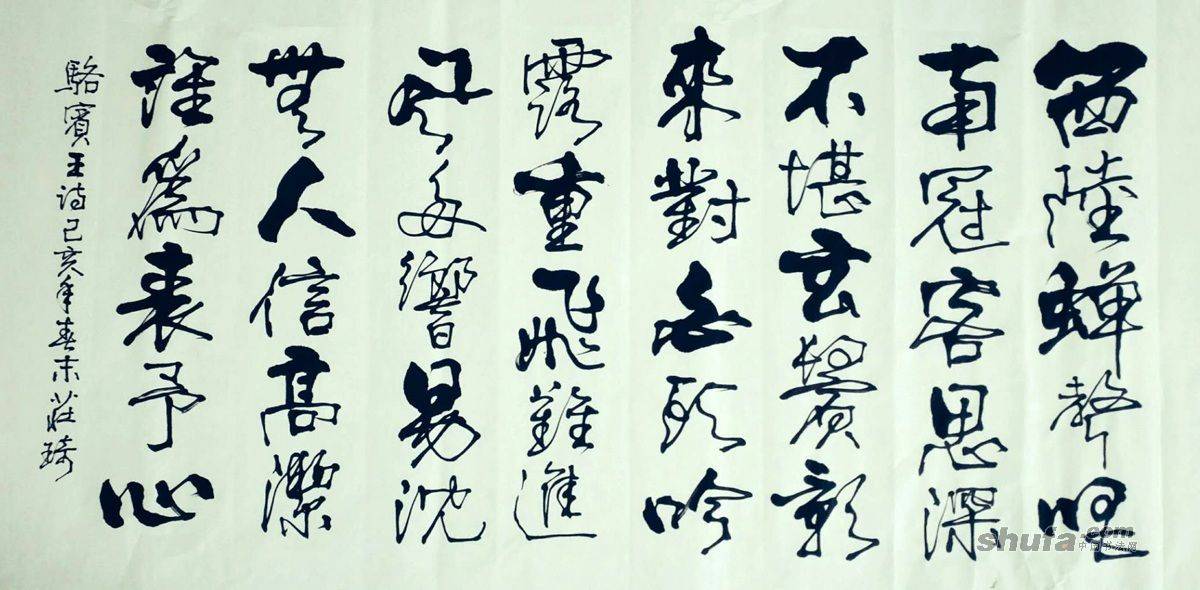 西陸蟬聲唱
南冠客思深
不堪玄鬢影
來對白頭吟
露重飛難進
風多響易沈
無人信高潔
誰為表予心
駱賓王詩己亥年春末莊琦
shufa.com
中国书法网